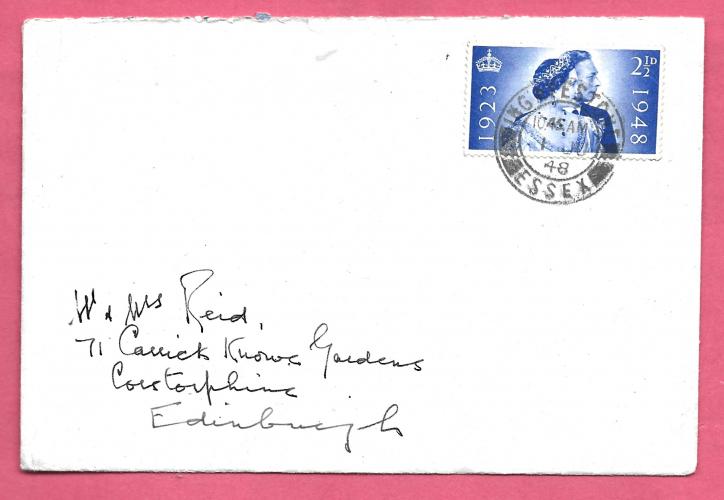 1923
2½D
1948
INGATESTONE
10 45 AM
1 JU
48
ESSEX
Mr & Mrs Reid,
71 Carrick Knowe Gardens
Corstorphine
Edinburgh